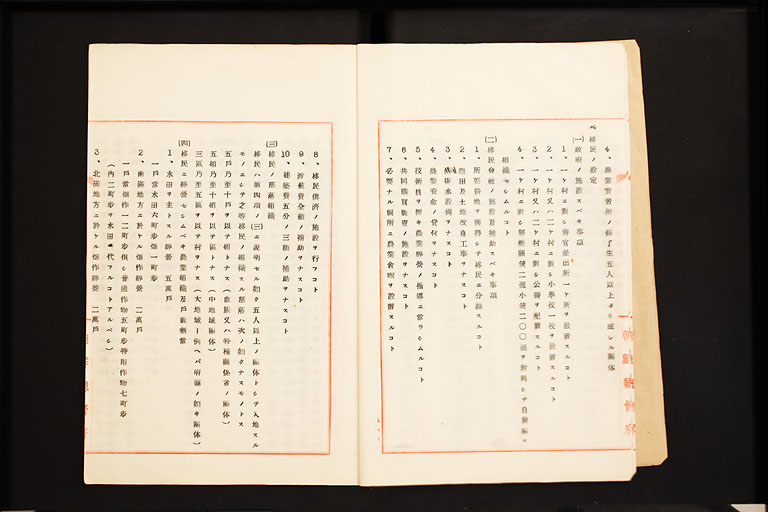 4、農業實習所ノ修了生五人以上ヨリ成ル團体
移民ノ設定
(一)政府ノ施設スベキ事項
1、一ケ村ニ對シ警官派出所一ケ所ヲ設置スルコト
2、一ケ村又ハ二ケ村ニ對シ小學校一校ヲ設置スルコト
3、一ケ村又ハ二ケ村ニ對シ公醫ヲ配置スルコト
4、一ケ村ニ對シ輕機關銃二挺小銃二〇〇挺ヲ附與シテ自警團ヲ
組織セシムルコト
(二)移民會社ノ施設及補助スベキ事項
1、所要耕地ヲ獲得シテ移民ニ分讓スルコト
2、灌田及土地改良工事ヲナスコト
3、飲水設備ヲナスコト
4、農業資金ノ貸付ヲナスコト
5、技術員ヲ附キ農業經營ノ指導ニ當ラシムルコト
6、共同購買販賣ノ施設ヲナスコト
7、必要ナル個所ニ農業倉庫ヲ設置スルコト
朝鮮總督府
8、移民供濟ノ施設ヲ行フコト
9、渡航費全額ノ補助ヲナスコト
10、建築費五分ノ三額ノ補助ヲナスコト
(三)移民ノ部落組織
移民ハ第四項ノ(三)ニ說明セル如ク五人以上ノ團体トシテ入地スル
モノニシテ之等移民ノ組織スル部落ハ次ノ如クナスモノトス
五戶乃至十戶ヲ以テ組トナス(血族又ハ特種關係者ノ團体)
五組乃至十組ヲ以テ區トナス(中地域團体)
三區乃至五區ヲ以テ村ヲナス(大地域ー例ヘバ府縣ノ如キ團体)
(四)移民ニ經營セシムベキ農業組織及戶數割當
1、水田ヲ主トスル經營 五萬戶
一戶當水田六町步畑一町步
2、南滿地方ニ於ケル畑作經營 二萬戶
一戶當畑作一二町步但シ普通作物五町步特用作物七町步
(內二町步ヲ水田ニ代フルコトアルベシ)
3、北滿地方ニ於ケル畑作經營 二萬戶